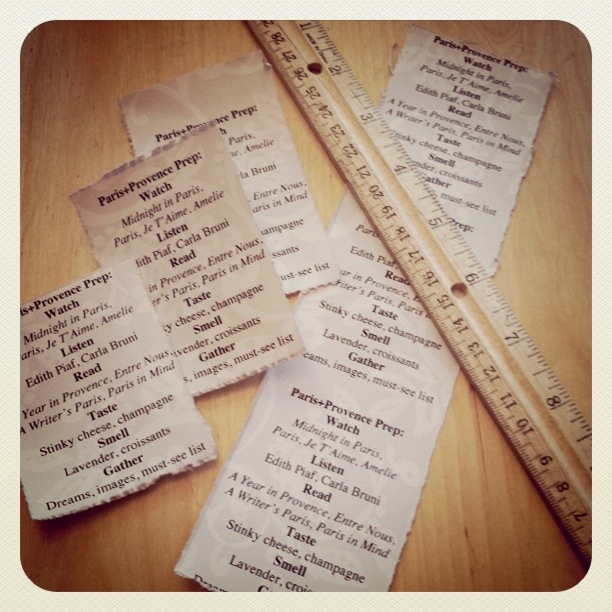 Paris+Provence Prep:
Watch
Midnight in Paris,
Paris, Je T'Aime, Amelie
Listen
Edith Piaf, Carla Bruni
Read
A Year in Provence, Entre Nous,
A Writer's Paris, Paris in Mind
Taste
Stinky cheese, champagne
Smell
Lavender, croissants
Gather
must-see list
Prep:
Paris+Provence Prep:
Paris,
la Bruni
Entre Nous,
in Mind
champagne
croissants
must-see list
Paris+Provence Prep:
Watch
Midnight in Paris,
Paris, Je T'Aime, Amelie
Listen
Edith Piaf, Carla Bruni
Read
in Provence, Entre Nous,
Paris, Paris in Mind
Taste
cheese, champagne
Smell
Lavender, croissants
Gather
images, must-see list
Paris+Provence Prep:
Watch
Midnight in Paris,
Paris, Je T'Aime, Amelie
Listen
Edith Piaf, Carla Bruni
Read
Year in Provence, Entre Nous
A Writer's Paris, Paris in Mind
Taste
Stinky cheese, champagne
Smell
Lavender, croissants
Gather
Dreams, images, must-see list
Paris,
Edith Piaf
Read
Taste
Stinky cheese, champagne
Smell
Lavender, croissants
Gather
Dreams, images, must-see list
Paris+Provence Prep:
Watch
Midnight in Paris,
Paris, Je T'Aime, Amelie
Listen
Edith Piaf, Carla Bruni
Read
A Year in Provence, Entre Nous,
A Writer's Paris, Paris in Mind
Taste
Stinky cheese, champagne
Smell
Lavender, croissants
1 2 3 4 5 6 7 8
28 27 26 25 24 23 22 21 20 19 18 17 16 15 14 13 12 11 10 9 8 7